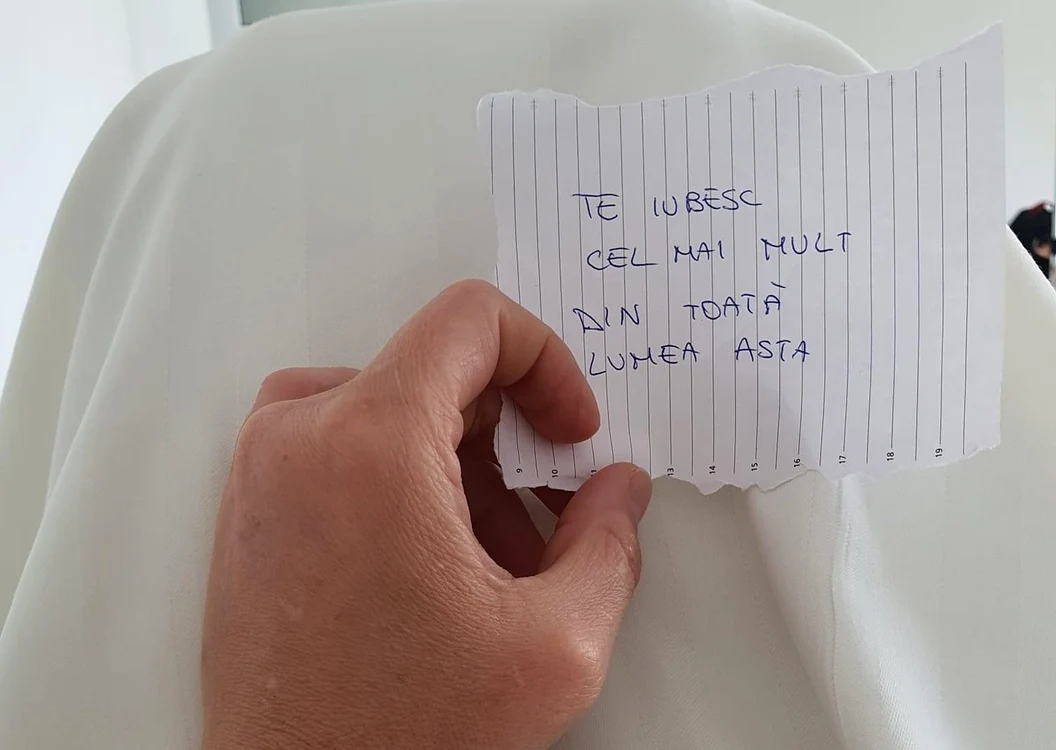 TE IUBESC
CEL MAI MULT
DIN TOATĂ
LUMEA ASTA
9 10 11 13 14 15 16 17 18 19